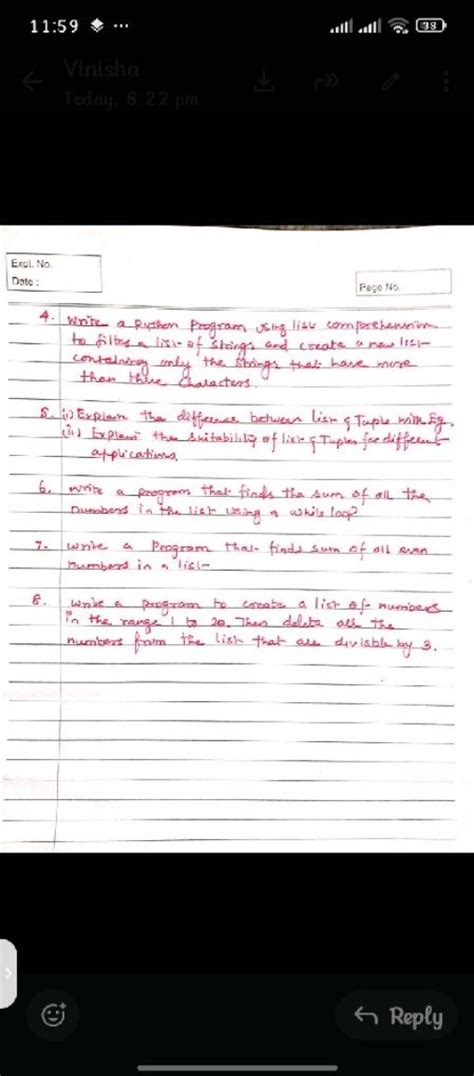 11:59 ...
38
Vinisha
Today, 8:22 pm
Expl. No.
Date :
Page No.
4. Write a Python Program using list comprehension
to filter a list of strings and create a new list
containing only the strings that have more
than three characters.
5. (i) Explain the difference between list & Tuple with Eg.
(ii) Explain the suitability of list & Tuples for different
applications.
6. write a program that finds the sum of all the
numbers in the list using a while loop?
7. write a Program that finds sum of all even
numbers in a list
8. write a program to create a list of numbers
in the range 1 to 20. Then delete all the
numbers from the list that are divisble by 3.
Reply